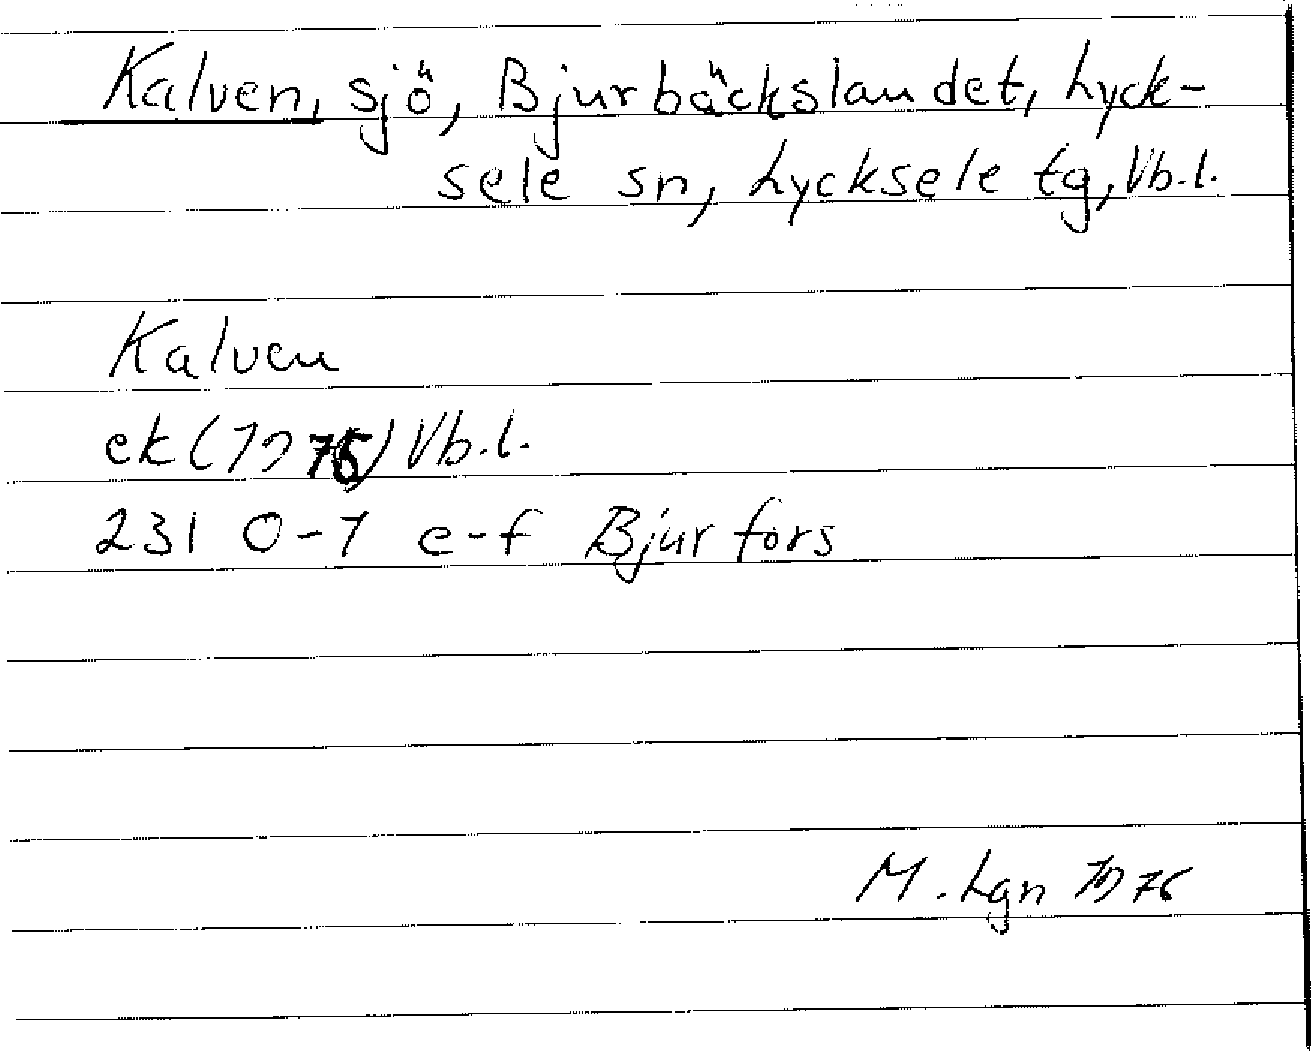 Kalven, sjö, Bjurbäckslandet, Lyck-
sele sn, Lycksele tg, Vb.l.
Kalven
ek (1975) Vb.l.
231 0-1 e-f Bjurfors
M. Lgn 1976